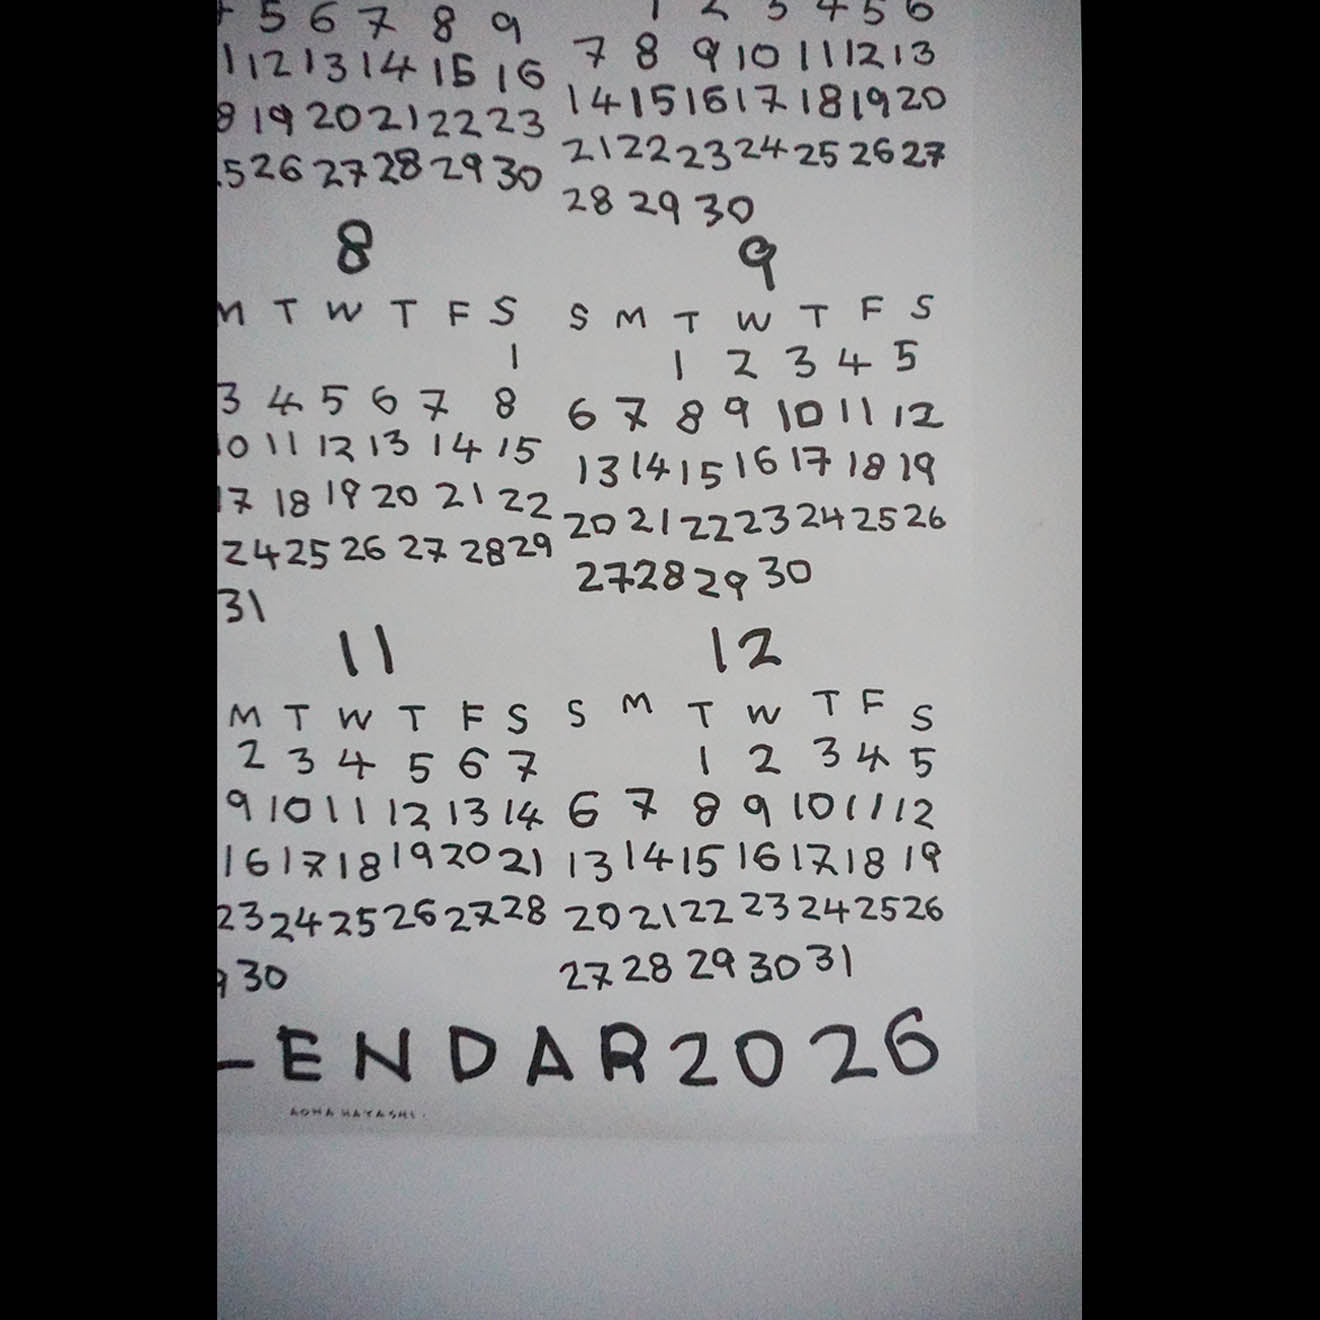 5 6 7 8 9
1 2 3 4 5 6
11 12 13 14 15 16
7 8 9 10 11 12 13
19 20 21 22 23
14 15 16 17 18 19 20
25 26 27 28 29 30
21 22 23 24 25 26 27
28 29 30
8
9
M T W T F S
S M T W T F S
1
1 2 3 4 5
3 4 5 6 7 8
6 7 8 9 10 11 12
10 11 12 13 14 15
13 14 15 16 17 18 19
17 18 19 20 21 22
20 21 22 23 24 25 26
24 25 26 27 28 29
27 28 29 30
31
11
12
M T W T F S
S M T W T F S
2 3 4 5 6 7
1 2 3 4 5
9 10 11 12 13 14
6 7 8 9 10 11 12
16 17 18 19 20 21
13 14 15 16 17 18 19
23 24 25 26 27 28
20 21 22 23 24 25 26
30
27 28 29 30 31
ENDAR 2026
HAYASHI